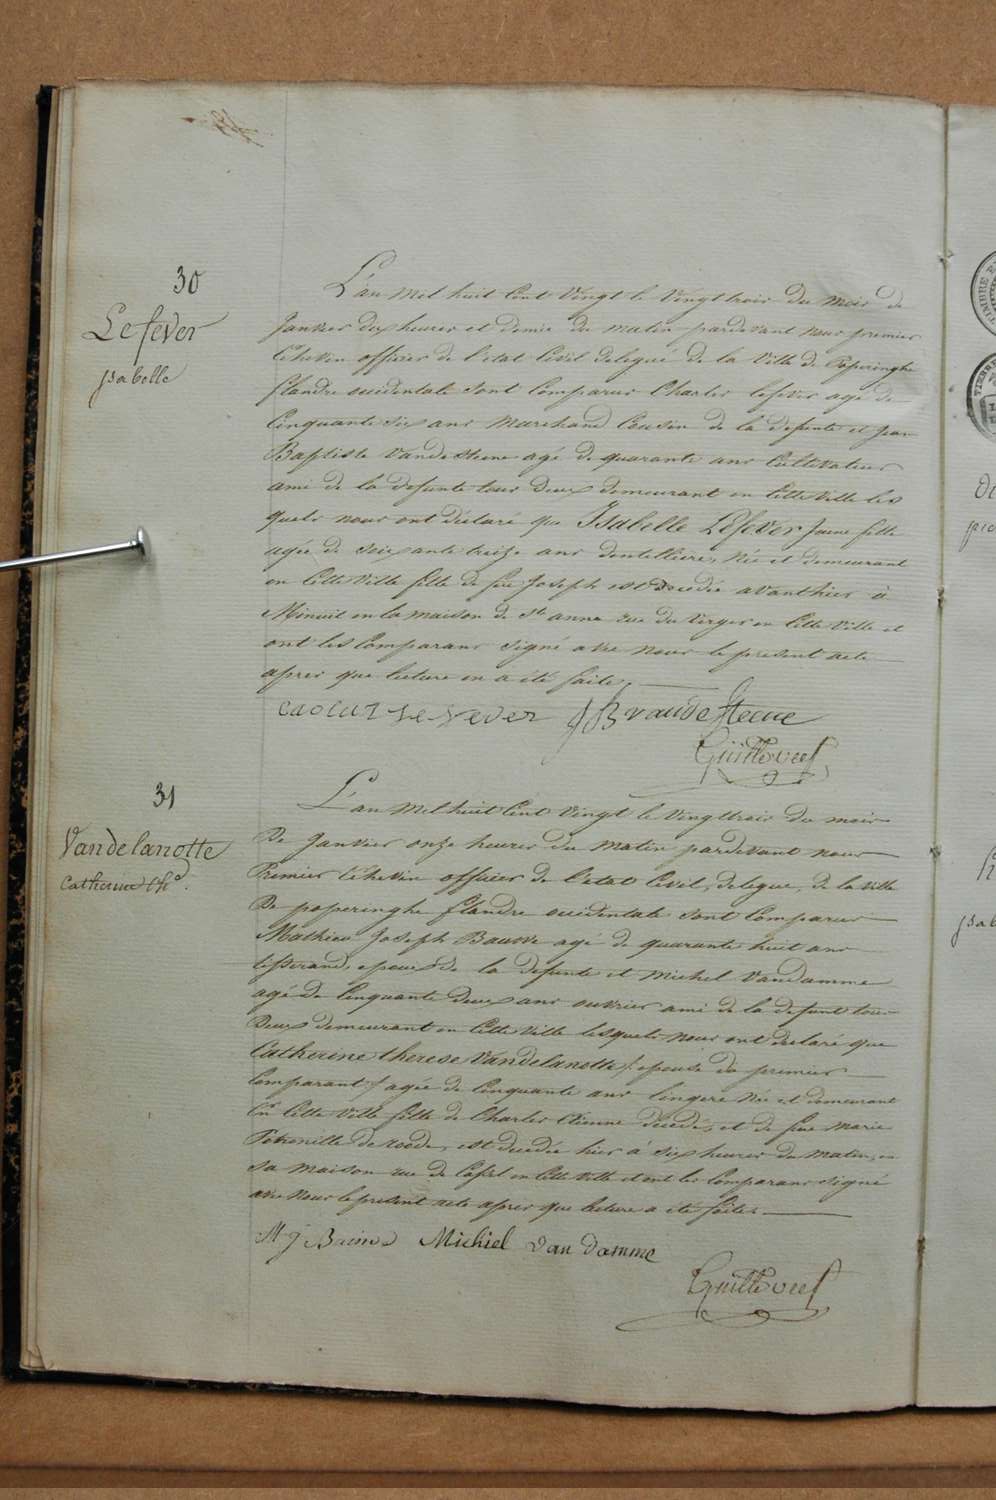 30
Lefever
Isabelle
L'an mil huit Cent Vingt le Vingttrois du mois de
Janvier dix heures et demie du matin pardevant nous premier
Echevin officier de l'etat Civil delegué de la Ville de Poperinghe
flandre occidentale sont Comparus Charles Lefever agé de
Cinquante six ans Marchand Cousin de la defunte et Jean
Baptiste Vandesteene agé de quarante ans Cultivateur
ami de la defunte tous deux demeurant en Cette Ville les
quels nous ont déclaré que Isabelle Lefever Jeune fille
agée de soixante treize ans dentelliere, Née et demeurant
en Cette Ville fille de feu Joseph est decedée avanthier à
Minuit en la maison de Ste anne rue du Verger en Cette Ville et
ont les Comparans signé avec nous le present acte
apres que lecture en a été faite.
Carlus Lefever JB vande Steene
31
Vandelanotte
Catherine Thse.
L'an Mil huit Cent Vingt le Vingttrois du mois
De Janvier onze heures du matin pardevant nous
Premier Echevin officier de l'etat Civil, delegué, de la Ville
De poperinghe flandre occidentale sont Comparus
Mathieu Joseph agé de quarante huit ans
tisserand, epoux de la defunte et Michel Vandamme
agé de Cinquante deux ans ouvrier ami de la defunt tous
Deux demeurant en Cette Ville lesquels nous ont declaré que
Catherine therese Vandelanotte /: epouse du premier
Comparant :/ agée de Cinquante ans lingere Née et demeurant
En Cette Ville fille de Charles Etienne décédé, et de feue Marie
Petronille de roode, est decedée hier à six heures du matin, en
sa maison rue de Cassel en Cette Ville et ont les Comparans signé
avec Nous le present acte apres que lecture a été faite.
M J Michiel van damme